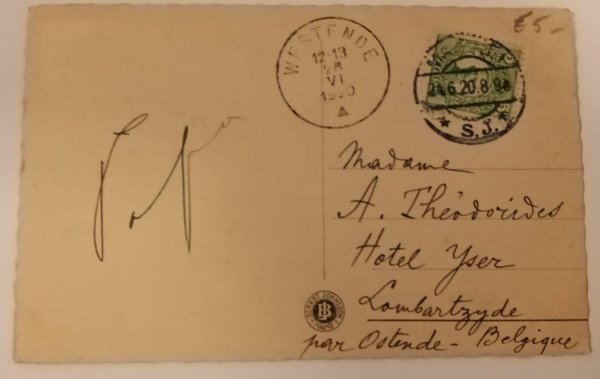 £5-
WESTENDE
12-13
28
VI
1920
24.6.20.8
S.J.
Madame
A. Théodorides
Hotel Yser
Lombartzyde
par Ostende - Belgique